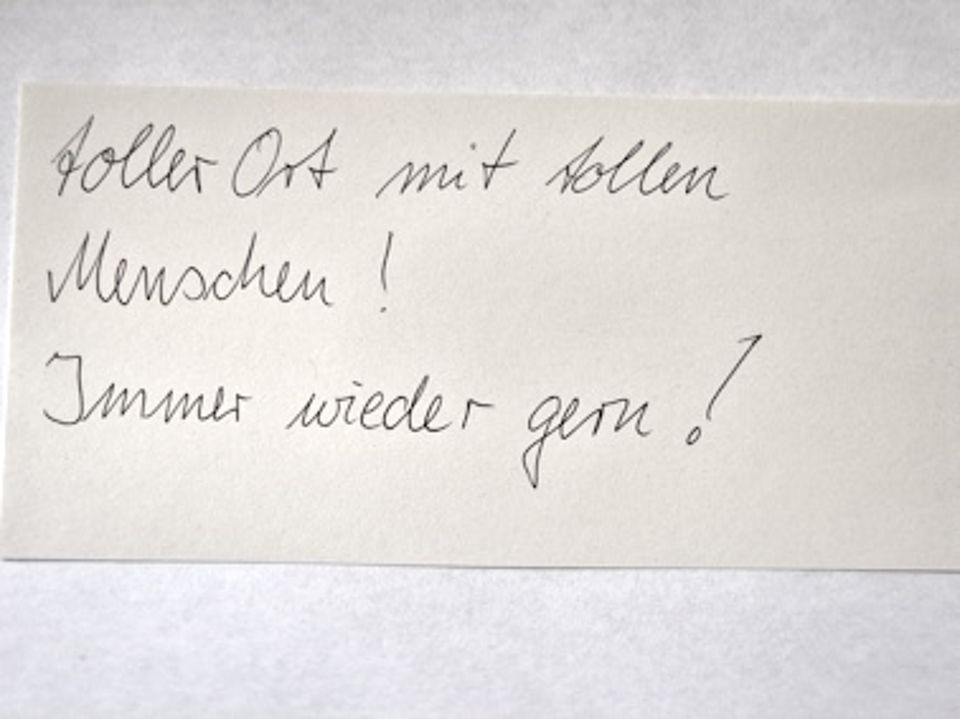 toller Ort mit tollen
Menschen!
Immer wieder gern!